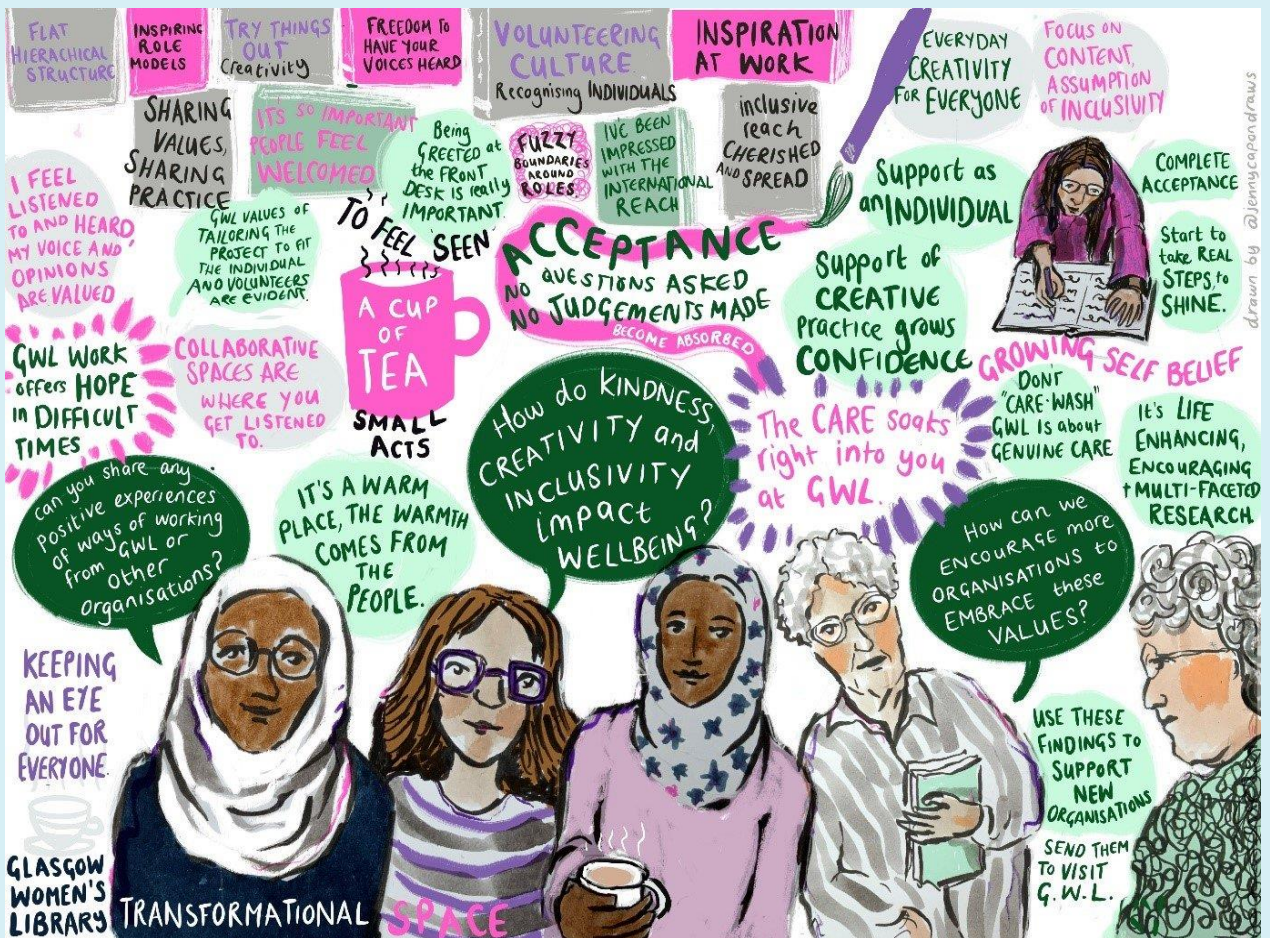 FLAT
HIERACHICAL
STRUCTURE
INSPIRING
ROLE
MODELS
TRY THINGS
OUT
Creativity
FREEDOM TO
HAVE YOUR
VOICES HEARD
VOLUNTEERING
CULTURE
Recognising INDIVIDUALS
INSPIRATION
AT WORK
EVERYDAY
CREATIVITY
FOR EVERYONE
FOCUS ON
CONTENT,
ASSUMPTION
OF INCLUSIVITY
drawn by @jennycapondraws
SHARING
VALUES,
SHARING
PRACTICE
IT'S SO IMPORTANT
PEOPLE FEEL
WELCOMED
Being
GREETED at
the FRONT
DESK is really
IMPORTANT.
FUZZY
BOUNDARIES
AROUND
ROLES
I'VE BEEN
IMPRESSED
WITH THE
INTERNATIONAL
REACH
inclusive
reach
CHERISHED
AND SPREAD
Support as
an INDIVIDUAL
COMPLETE
ACCEPTANCE
Start to
take REAL
STEPS, to
SHINE.
I FEEL
LISTENED
TO AND HEARD,
MY VOICE AND
OPINIONS
ARE VALUED
GWL VALUES OF
TAILORING THE
PROJECT TO FIT
THE INDIVIDUAL
AND VOLUNTEERS
ARE EVIDENT.
TO FEEL SEEN
A CUP
OF
TEA
SMALL
ACTS
ACCEPTANCE
NO QUESTIONS ASKED
NO JUDGEMENTS MADE
BECOME ABSORBED
Support of
CREATIVE
Practice grows
CONFIDENCE
GROWING SELF BELIEF
GWL WORK
offers HOPE
in DIFFICULT
TIMES
COLLABORATIVE
SPACES ARE
WHERE YOU
GET LISTENED
TO.
How do KINDNESS,
CREATIVITY and
INCLUSIVITY
impact
WELLBEING?
The CARE soaks
right into you
at GWL.
DON'T
"CARE-WASH"
GWL IS about
GENUINE CARE
It's LIFE
ENHANCING,
ENCOURAGING
+ MULTI-FACETED
RESEARCH
can you share any
positive experiences
of ways of working
from GWL or
other
organisations?
IT'S A WARM
PLACE, THE WARMTH
COMES FROM
THE
PEOPLE.
How can we
ENCOURAGE more
ORGANISATIONS to
EMBRACE these
VALUES?
KEEPING
AN EYE
OUT FOR
EVERYONE.
USE THESE
FINDINGS TO
SUPPORT
NEW
ORGANISATIONS
SEND THEM
TO VISIT
G.W.L.
GLASGOW
WOMEN'S
LIBRARY
TRANSFORMATIONAL
SPACE